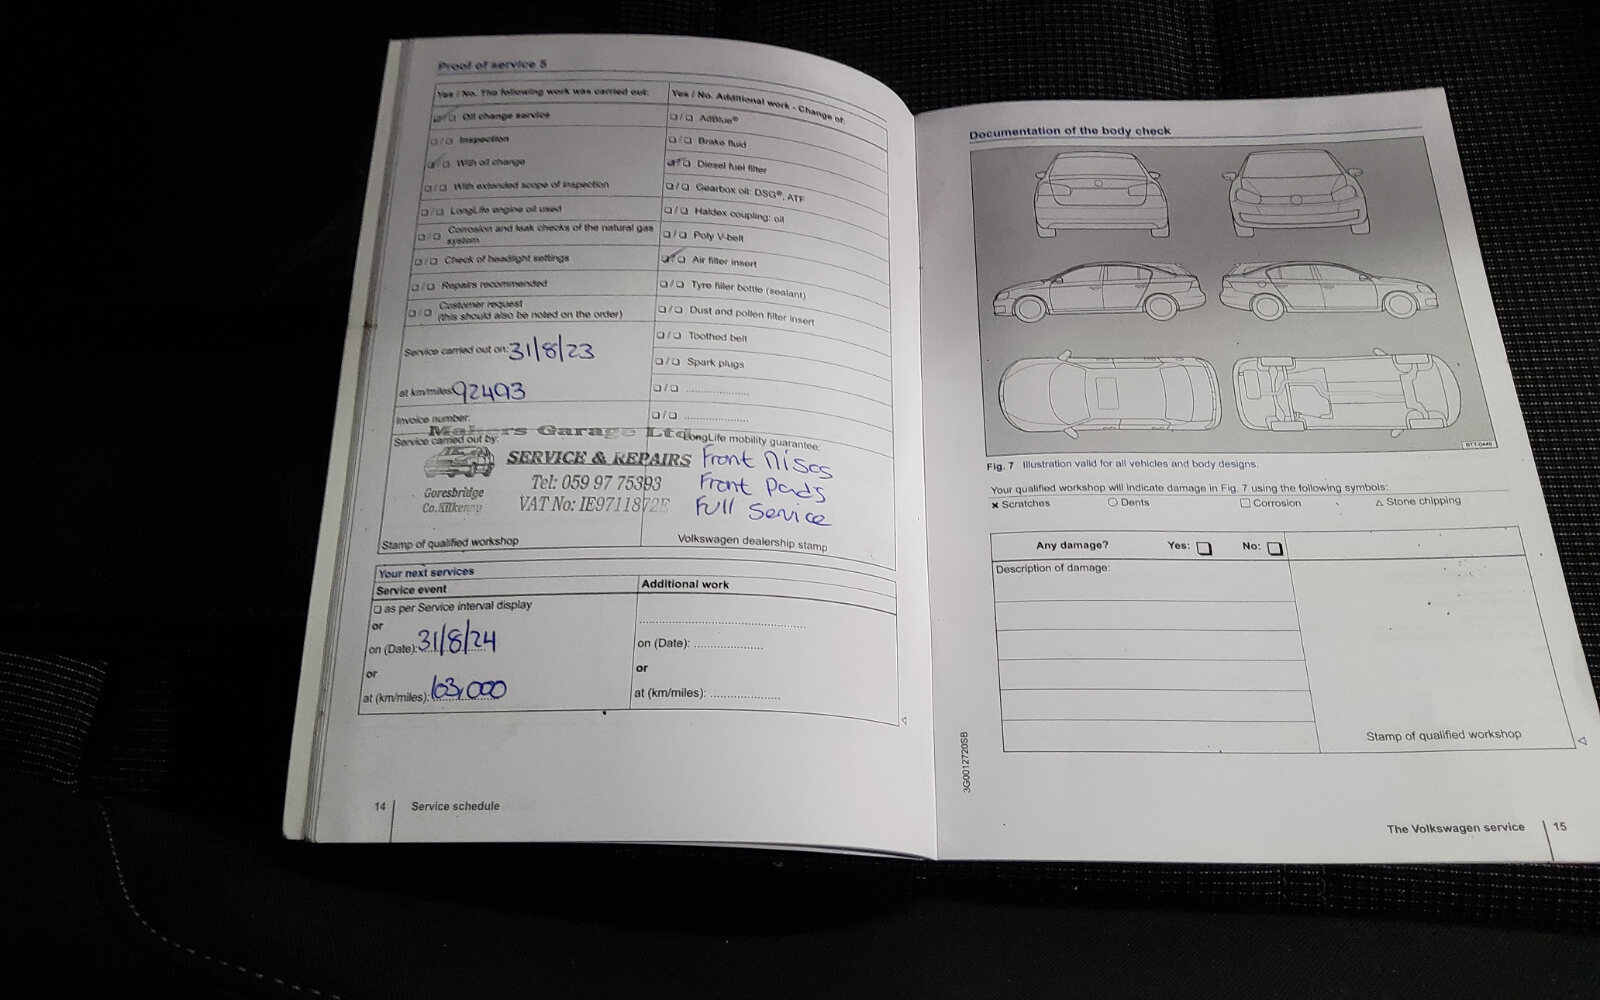 Proof of service 5
Yes / No. The following work was carried out:
❑ / ❑ Oil change service
❑ / ❑ Inspection
❑ / ❑ With oil change
❑ / ❑ With extended scope of inspection
❑ / ❑ LongLife engine oil used
❑ / ❑ Corrosion and leak checks of the natural gas
system
❑ / ❑ Check of headlight settings
❑ / ❑ Repairs recommended
❑ / ❑ Customer request
(this should also be noted on the order)
Service carried out on: 31/8/23
at km/miles 92493
Invoice number:
Service carried out by:
Mahers Garage Ltd
SERVICE & REPAIRS
Tel: 059 97 75393
Goresbridge
Co. Kilkenny
VAT No: IE9711872E
Stamp of qualified workshop
Yes / No. Additional work - Change of:
❑ / ❑ AdBlue®
❑ / ❑ Brake fluid
❑ / ❑ Diesel fuel filter
❑ / ❑ Gearbox oil: DSG®, ATF
❑ / ❑ Haldex coupling: oil
❑ / ❑ Poly V-belt
❑ / ❑ Air filter insert
❑ / ❑ Tyre filler bottle (sealant)
❑ / ❑ Dust and pollen filter insert
❑ / ❑ Toothed belt
❑ / ❑ Spark plugs
❑ / ❑ ....................
❑ / ❑ ....................
LongLife mobility guarantee:
Front Discs
Front Pads
Full Service
Volkswagen dealership stamp
Your next services
Service event
❑ as per Service interval display
or
on (Date): 31/8/24
or
at (km/miles): 103,000
Additional work
on (Date): ....................
or
at (km/miles): ....................
14 Service schedule
Documentation of the body check
BTT-0449
Fig. 7 Illustration valid for all vehicles and body designs.
Your qualified workshop will indicate damage in Fig. 7 using the following symbols:
✖ Scratches ○ Dents □ Corrosion △ Stone chipping
Any damage? Yes: ❑ No: ❑
Description of damage:
Stamp of qualified workshop
3G0012720SB
The Volkswagen service 15